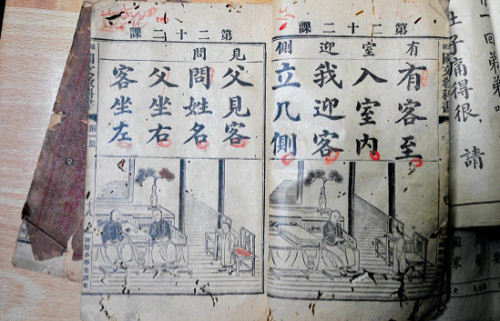 第二十二課
有室迎側
有客至
入室內
我迎客
立几側
第二十二課
見問
父見客
問姓名
父坐右
客坐左
國文教科書
肚子痛得很，請